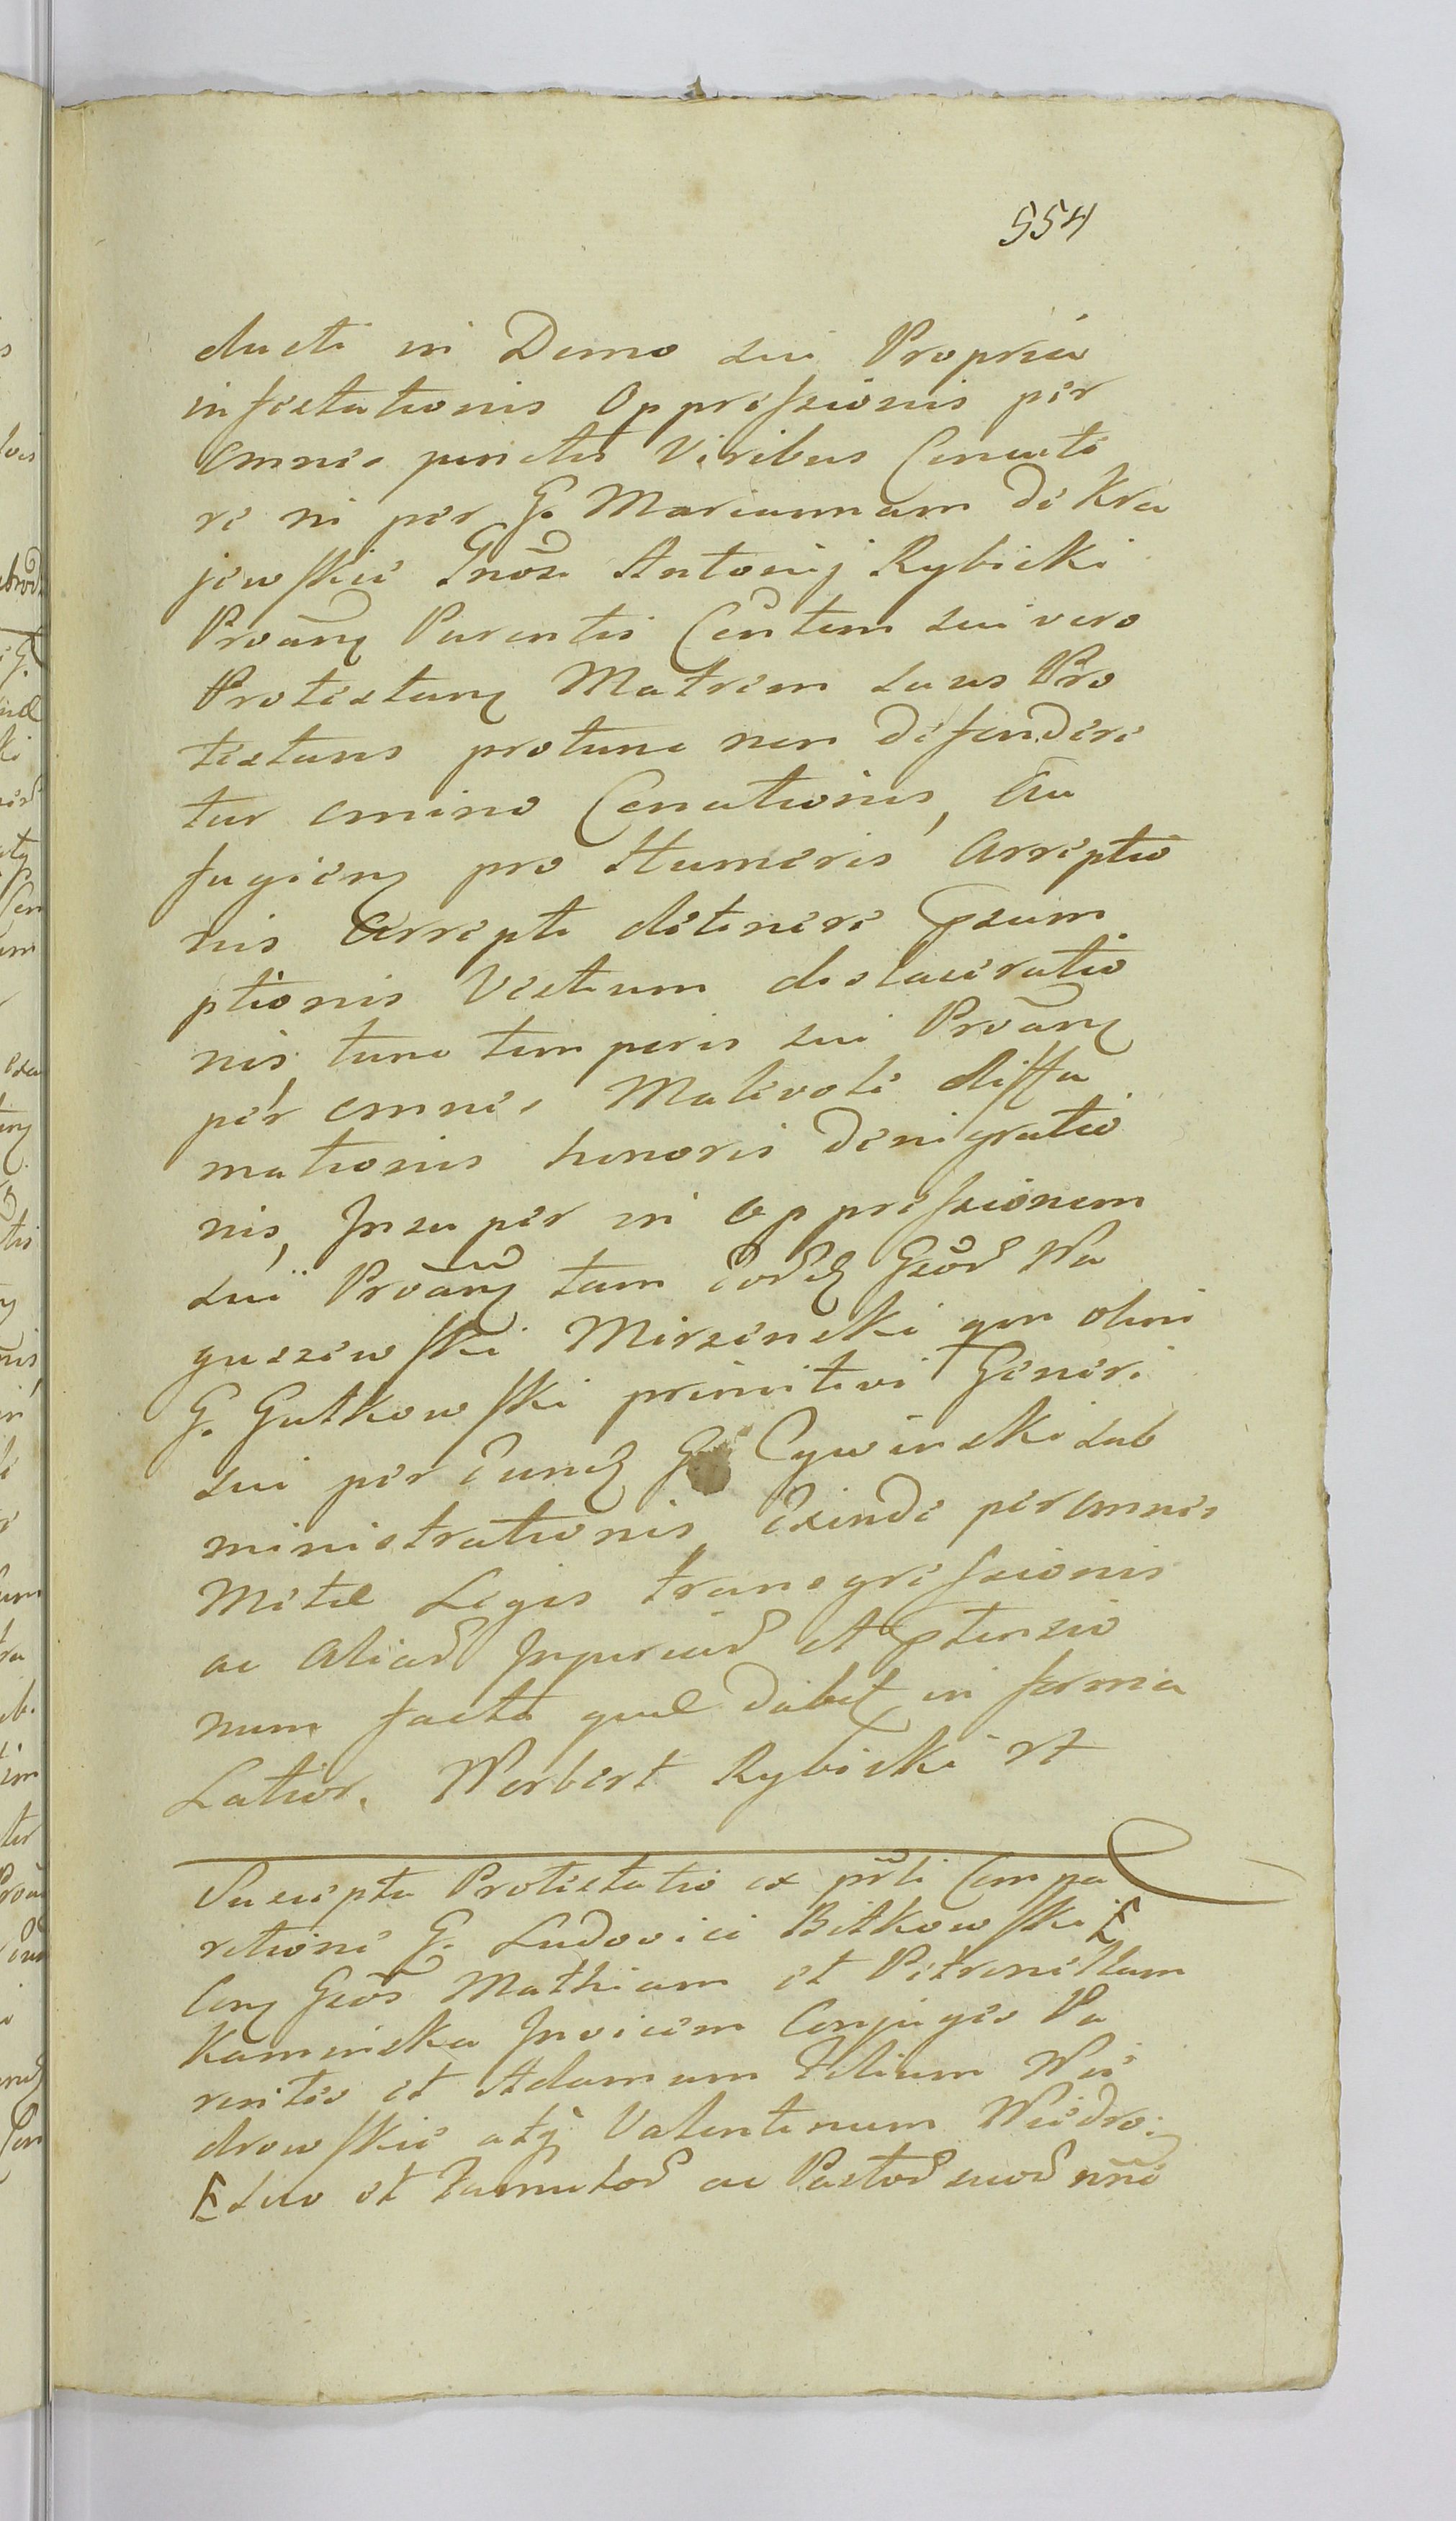 554
ducti in Domo sui Propria
infestationis Oppressionis per
omnes punctis Viribus Conati
re ni per G. Mariannam de Kra
jewskie Gnõsi Antonij Rybicki
Proãnȝ Parentis Centem sui vero
Protestanȝ Matrem suus Pro
testans protunc non defendere
tur omnino Conationis, Au
fugienȝ pro Humeris Arreptio
nis Arrepti detinere
ptionis Vestium dislaceratio
nis tunc temporis sui Proãnȝ
per omnes Malevole diffa
mationis honoris denigratio
nis, Insuper in oppressionem
sui Proãnȝ tam Eordȝ Gsõr Wa
guszewski Mirzenski qm olim
G. Gutkowski primitivi Generi
sui per Eundȝ G. Cywinski sub
ministrationis Exinde per omnes
Mitil Legis transgressionis
ac Aliar Injuriar et ptensio
num facta qual dabit in forma
Latior. Norbert Rybicki rt
Suscepta Protestatio ex prti Compa
ritione G. Ludovici Bitkowski
Conȝ Gsõs Mathiam et Petronellam
Kaminska Invicem Conjuges Pa
rentes et Adamum Filium Wie
drowskie atq Valentinum Wiedro:
suo et Famulor ac Pastor suor nñe